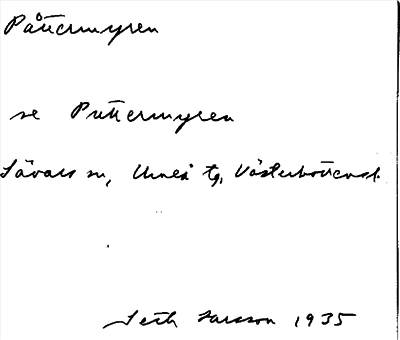 Påttermyren
se Puttermyren
Sävars sn, Umeå tg, Västerbottens l.
Seth Larsson 1935